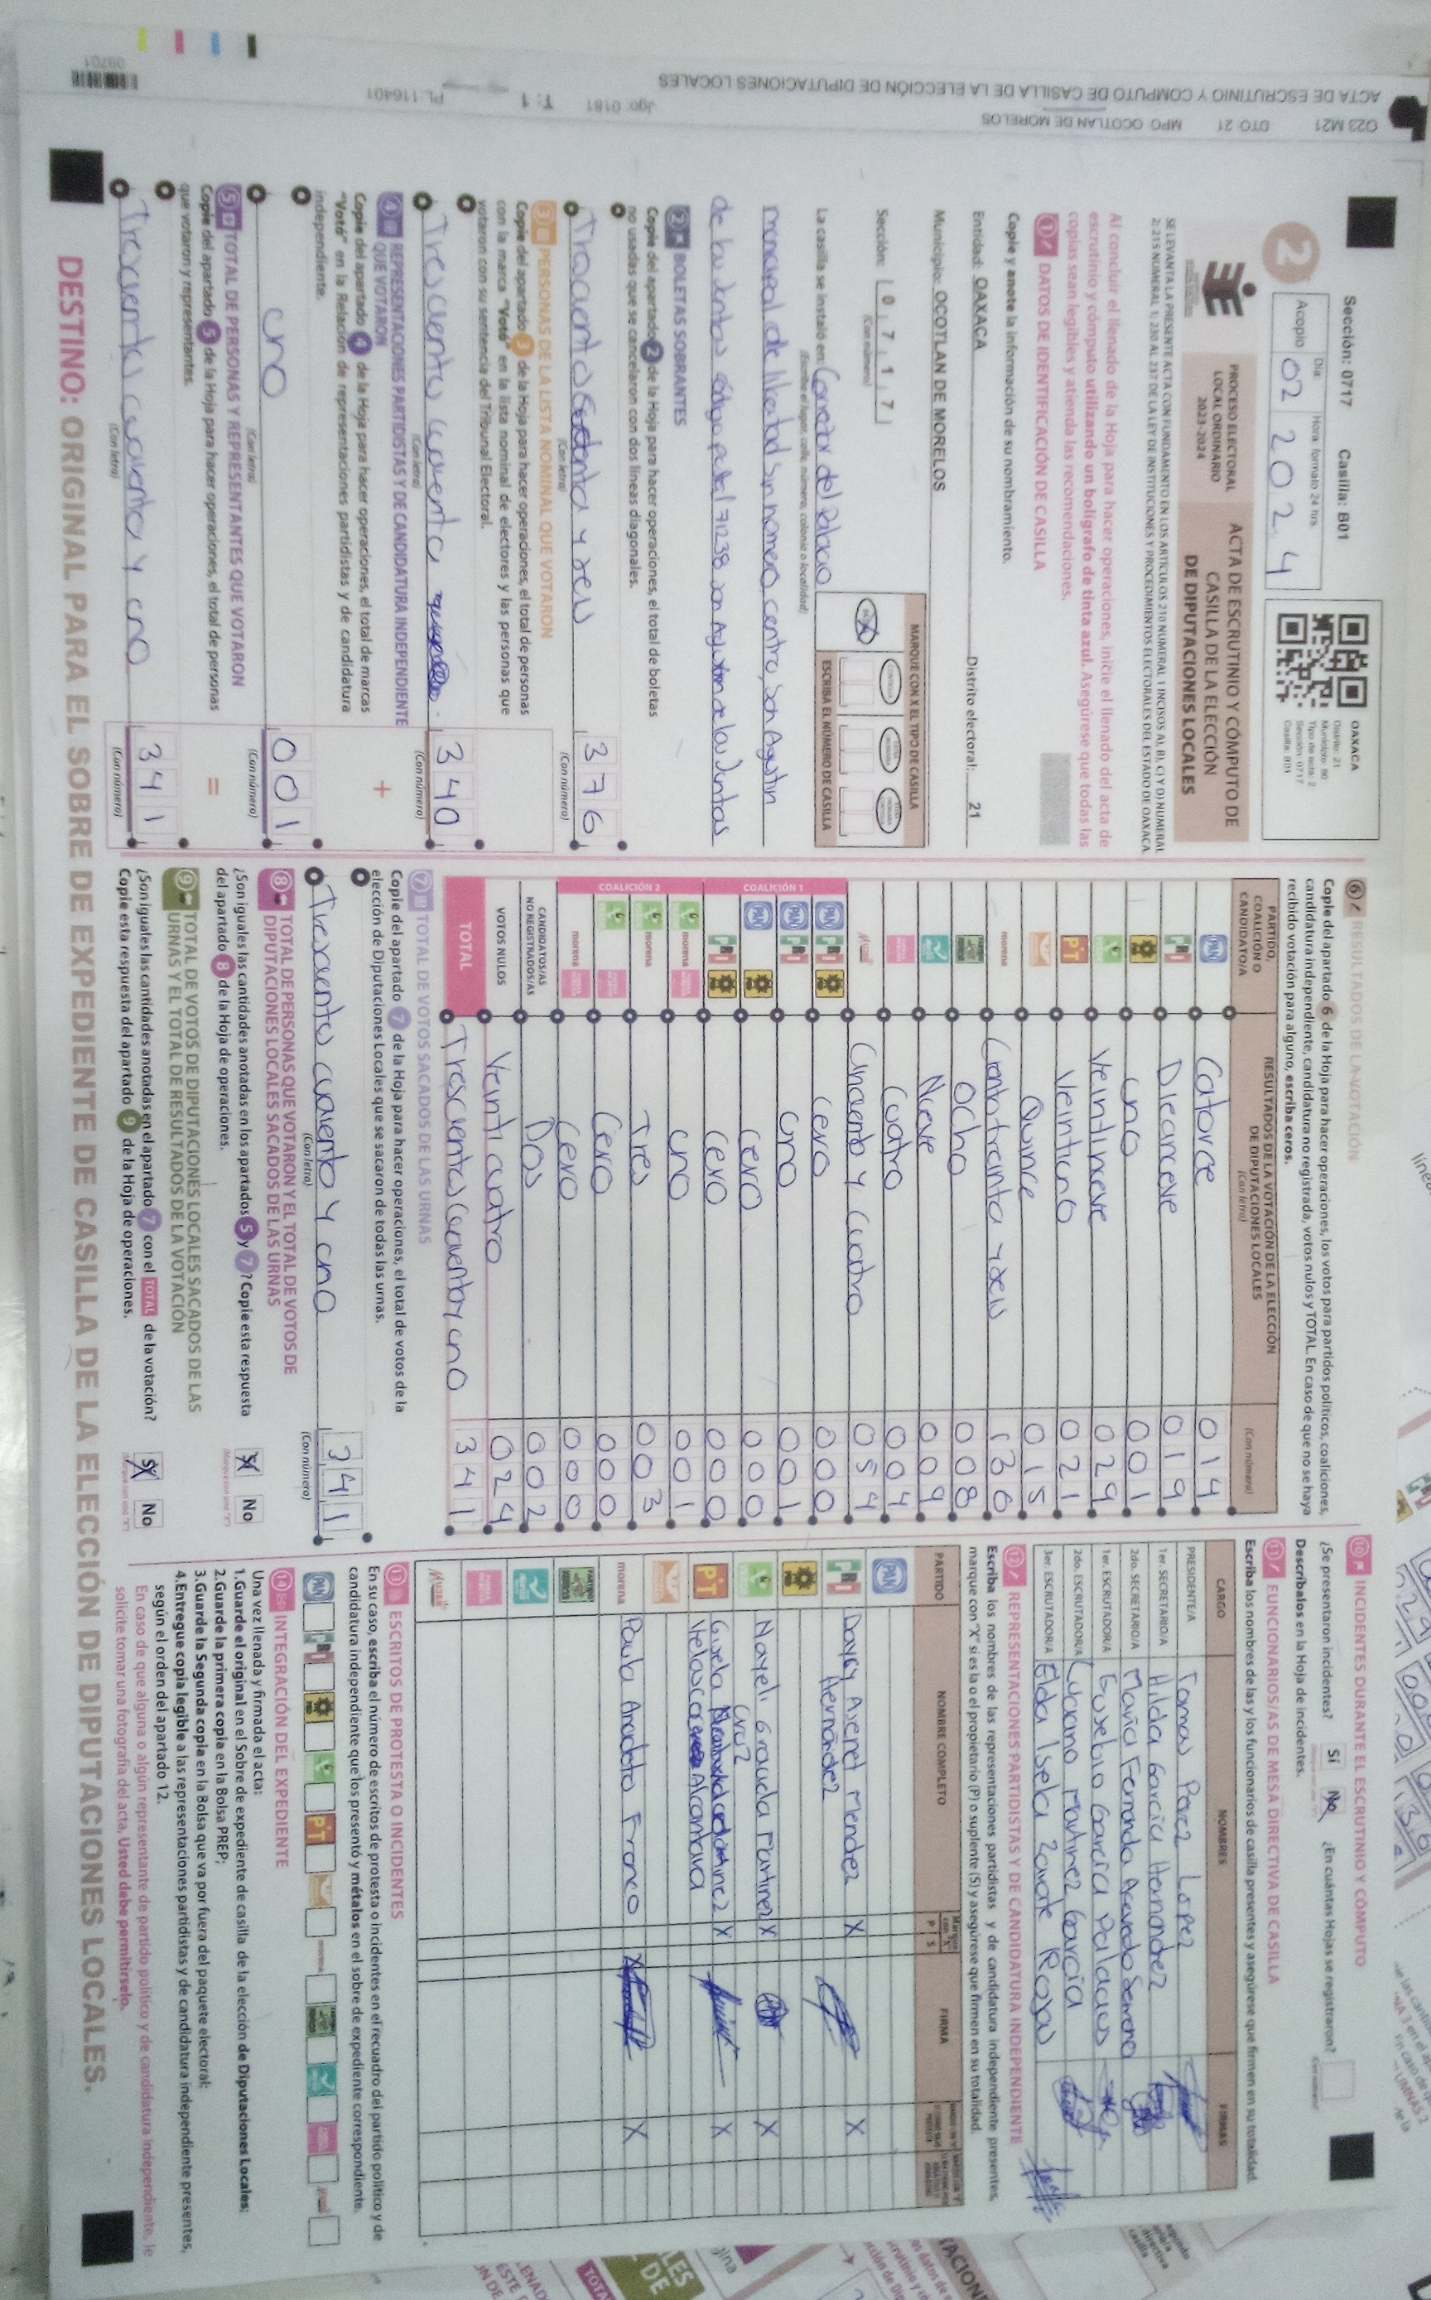 Sección: 0717 Casilla: B01
Día: Hora: formato 24 hrs.
Acopio 02 2024
OAXACA
Distrito: 21
Municipio: 90
Tipo de acta: 2
Sección: 0717
Casilla: B01
2
PROCESO ELECTORAL
LOCAL ORDINARIO
2023-2024
ACTA DE ESCRUTINIO Y CÓMPUTO DE
CASILLA DE LA ELECCIÓN
DE DIPUTACIONES LOCALES
Al concluir el llenado de la Hoja para hacer operaciones, inicie el llenado del acta de
escrutinio y cómputo utilizando un bolígrafo de tinta azul. Asegúrese que todas las
copias sean legibles y atienda las recomendaciones.
1 DATOS DE IDENTIFICACIÓN DE CASILLA
Copie y anote la información de su nombramiento.
Entidad: OAXACA Distrito electoral: 21
Municipio: OCOTLAN DE MORELOS
Sección: 0 7 1 7
(Con número)
MARQUE CON X EL TIPO DE CASILLA
ESCRIBA EL NÚMERO DE CASILLA
La casilla se instaló en: Corredor del Palacio
(Escriba el lugar, calle, número, colonia o localidad)
municipal de libertad Sin número, centro, San Agustin
2 BOLETAS SOBRANTES
Copie del apartado 2 de la Hoja para hacer operaciones, el total de boletas
no usadas que se cancelaron con dos líneas diagonales.
376
(Con letra) (Con número)
3 PERSONAS DE LA LISTA NOMINAL QUE VOTARON
Copie del apartado 3 de la Hoja para hacer operaciones, el total de personas
con la marca "Votó" en la lista nominal de electores y las personas que
votaron con su sentencia del Tribunal Electoral.
340
(Con letra) (Con número)
4 REPRESENTACIONES PARTIDISTAS Y DE CANDIDATURA INDEPENDIENTE
QUE VOTARON
Copie del apartado 4 de la Hoja para hacer operaciones, el total de marcas
"Votó" en la Relación de representaciones partidistas y de candidatura
independiente.
uno 001
(Con letra) (Con número)
5 TOTAL DE PERSONAS Y REPRESENTANTES QUE VOTARON
Copie del apartado 5 de la Hoja para hacer operaciones, el total de personas
que votaron y representantes.
341
(Con letra) (Con número)
6 RESULTADOS DE LA VOTACIÓN
Copie del apartado 6 de la Hoja para hacer operaciones, los votos para partidos políticos, coaliciones,
candidatura independiente, candidatura no registrada, votos nulos y TOTAL. En caso de que no se haya
recibido votación para alguno, escriba ceros.
PARTIDO,
COALICIÓN O
CANDIDATO/A
RESULTADOS DE LA VOTACIÓN DE LA ELECCIÓN
DE DIPUTACIONES LOCALES
(Con letra) (Con número)
PAN Catorce 014
PRI Diecinueve 019
uno 001
Veintinueve 029
PT Veintiuno 021
Quince 015
morena 136
Ocho 008
Nueve 009
Cuatro 004
Cincuenta y Cuatro 054
COALICIÓN 1
PAN PRI Cero 000
PAN PRI Uno 001
PAN Cero 000
PRI Cero 000
COALICIÓN 2
morena uno 001
morena Tres 003
Cero 000
morena Cero 000
CANDIDATOS/AS
NO REGISTRADOS/AS Dos 002
VOTOS NULOS Veinti cuatro 024
TOTAL 341
7 TOTAL DE VOTOS SACADOS DE LAS URNAS
Copie del apartado 7 de la Hoja para hacer operaciones, el total de votos de la
elección de Diputaciones Locales que se sacaron de todas las urnas.
341
(Con letra) (Con número)
8 TOTAL DE PERSONAS QUE VOTARON Y EL TOTAL DE VOTOS DE
DIPUTACIONES LOCALES SACADOS DE LAS URNAS
¿Son iguales las cantidades anotadas en los apartados 5 y 7? Copie esta respuesta
del apartado 8 de la Hoja de operaciones.
Sí No
9 TOTAL DE VOTOS DE DIPUTACIONES LOCALES SACADOS DE LAS
URNAS Y EL TOTAL DE RESULTADOS DE LA VOTACIÓN
¿Son iguales las cantidades anotadas en el apartado 7 con el TOTAL de la votación?
Copie esta respuesta del apartado 9 de la Hoja de operaciones.
Sí No
10 INCIDENTES DURANTE EL ESCRUTINIO Y CÓMPUTO
¿Se presentaron incidentes? Sí No ¿En cuántas Hojas se registraron?
Descríbalos en la Hoja de incidentes.
11 FUNCIONARIOS/AS DE MESA DIRECTIVA DE CASILLA
Escriba los nombres de las y los funcionarios de casilla presentes y asegúrese que firmen en su totalidad.
CARGO NOMBRES FIRMAS
PRESIDENTE/A Tomas Perez Lopez
1er. SECRETARIO/A Hilda Garcia Hernandez
2do. SECRETARIO/A Maria Fernanda Acevedo Serrano
1er. ESCRUTADOR/A Eusebio Garcia Palacios
2do. ESCRUTADOR/A Luciano Martinez Garcia
3er. ESCRUTADOR/A Elda Isela Zarate Rojas
12 REPRESENTACIONES PARTIDISTAS Y DE CANDIDATURA INDEPENDIENTE
Escriba los nombres de las representaciones partidistas y de candidatura independiente presentes,
marque con "X" si es la o el propietario (P) o suplente (S) y asegúrese que firmen en su totalidad.
PARTIDO NOMBRE COMPLETO P S FIRMA
PAN
PRI Mendez X X
Hernández
Nayeli Graciela Martinez X X
Cruz
PT Gisela X X
Alcantara
morena Paula Franco X X
13 ESCRITOS DE PROTESTA O INCIDENTES
En su caso, escriba el número de escritos de protesta o incidentes en el recuadro del partido político y de
candidatura independiente que los presentó y métalos en el sobre de expediente correspondiente.
14 INTEGRACIÓN DEL EXPEDIENTE
Una vez llenada y firmada el acta:
1.Guarde el original en el Sobre de expediente de casilla de la elección de Diputaciones Locales;
2.Guarde la primera copia en la Bolsa PREP;
3.Guarde la Segunda copia en la Bolsa que va por fuera del paquete electoral;
4.Entregue copia legible a las representaciones partidistas y de candidatura independiente presentes,
según el orden del apartado 12.
En caso de que alguna o algún representante de partido político y de candidatura independiente, le
solicite tomar una fotografía del acta, Usted debe permitírselo.
DESTINO: ORIGINAL PARA EL SOBRE DE EXPEDIENTE DE CASILLA DE LA ELECCIÓN DE DIPUTACIONES LOCALES.
023 M21 DTO: 21 MPO: OCOTLAN DE MORELOS
ACTA DE ESCRUTINIO Y CÓMPUTO DE CASILLA DE LA ELECCIÓN DE DIPUTACIONES LOCALES
Jgo: 0181 T: 1 PL: 116401
09701